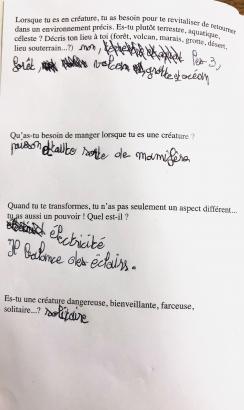 Lorsque tu es en créature, tu as besoin pour te revitaliser de retourner
dans un environnement précis. Es-tu plutôt terrestre, aquatique,
céleste ? Décris ton lieu à toi (forêt, volcan, marais, grotte, désert,
lieu souterrain...?) Les 3,
forêt, volcan grotte et océan
Qu'as-tu besoin de manger lorsque tu es une créature ?
poisson et autre sorte de mamifère
Quand tu te transformes, tu n'as pas seulement un aspect différent...
tu as aussi un pouvoir ! Quel est-il ?
électricité
Il balance des éclairs.
Es-tu une créature dangereuse, bienveillante, farceuse,
solitaire...? solitaire